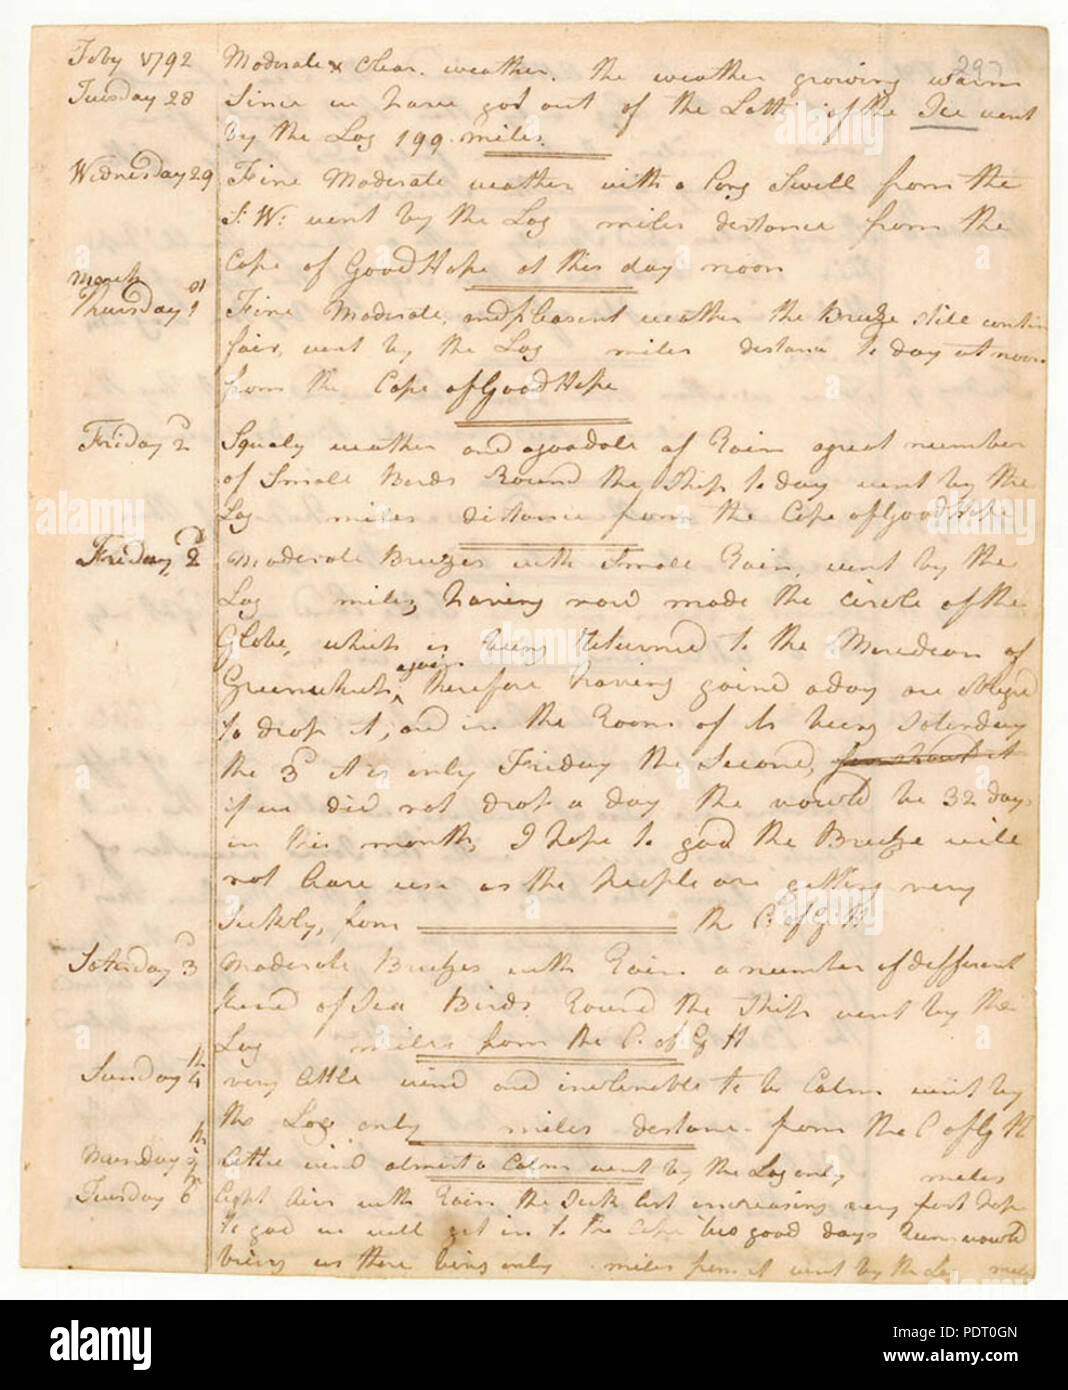 297
Feby 1792 Moderate & Clear. weather. the weather growing warm
Tuesday 28 Since we have got out of the Latti: of the Ice went
by the Log 199. miles.
Wednesday 29 Fine Moderate weather with a Long Swell from the
S: W: went by the Log miles distance from the
Cape of Good Hope at this day noon
March
Thursday 01 Fine Moderate, and pleasent weather the Breeze still contin
fair, went by the Log miles distance to day at noon
from the Cape of Good Hope
Friday 2d Squaly weather and a goodale of Rain a great number
of Small Birds Round the Ship to day went by the
Log miles distance from the Cape of Good Hope
Friday, 2d Moderate Breezes with Small Rain, went by the
Log miles, having now made the circle of the
Globe, which is being Returned to the Meredean of
Greenwhich again therefore having gaind a day are obliged
to drop it, and in the Room of its being Saterday
the 3d it is only Friday the Second, it
if we did not drop a day the would be 32 days
in this month, I hope to god the Breeze will
not leave us as the people are getting very
Sickly, from the C of G H
Saterday 3d Moderate Breezes with Rain. a number of different
kind of Sea Birds Round the Ship went by the
Log miles from the C. of G H
Sunday 4th very little wind and inclineable to be Calm went by
the Log only miles distance from the C of G H
Munday 5th little wind almost a Calm went by the Log only miles
Tuesday 6th Light Airs with Rain the Sick list increasing very fast hope
to god we will get in to the Cape two good days Runn would
bring us there being only miles from it went by the Log miles
alamy
alamy
alamy
alamy
alamy
alamy
alamy
alamy
alamy
alamy
alamy
Image ID: PDT0GN
www.alamy.com